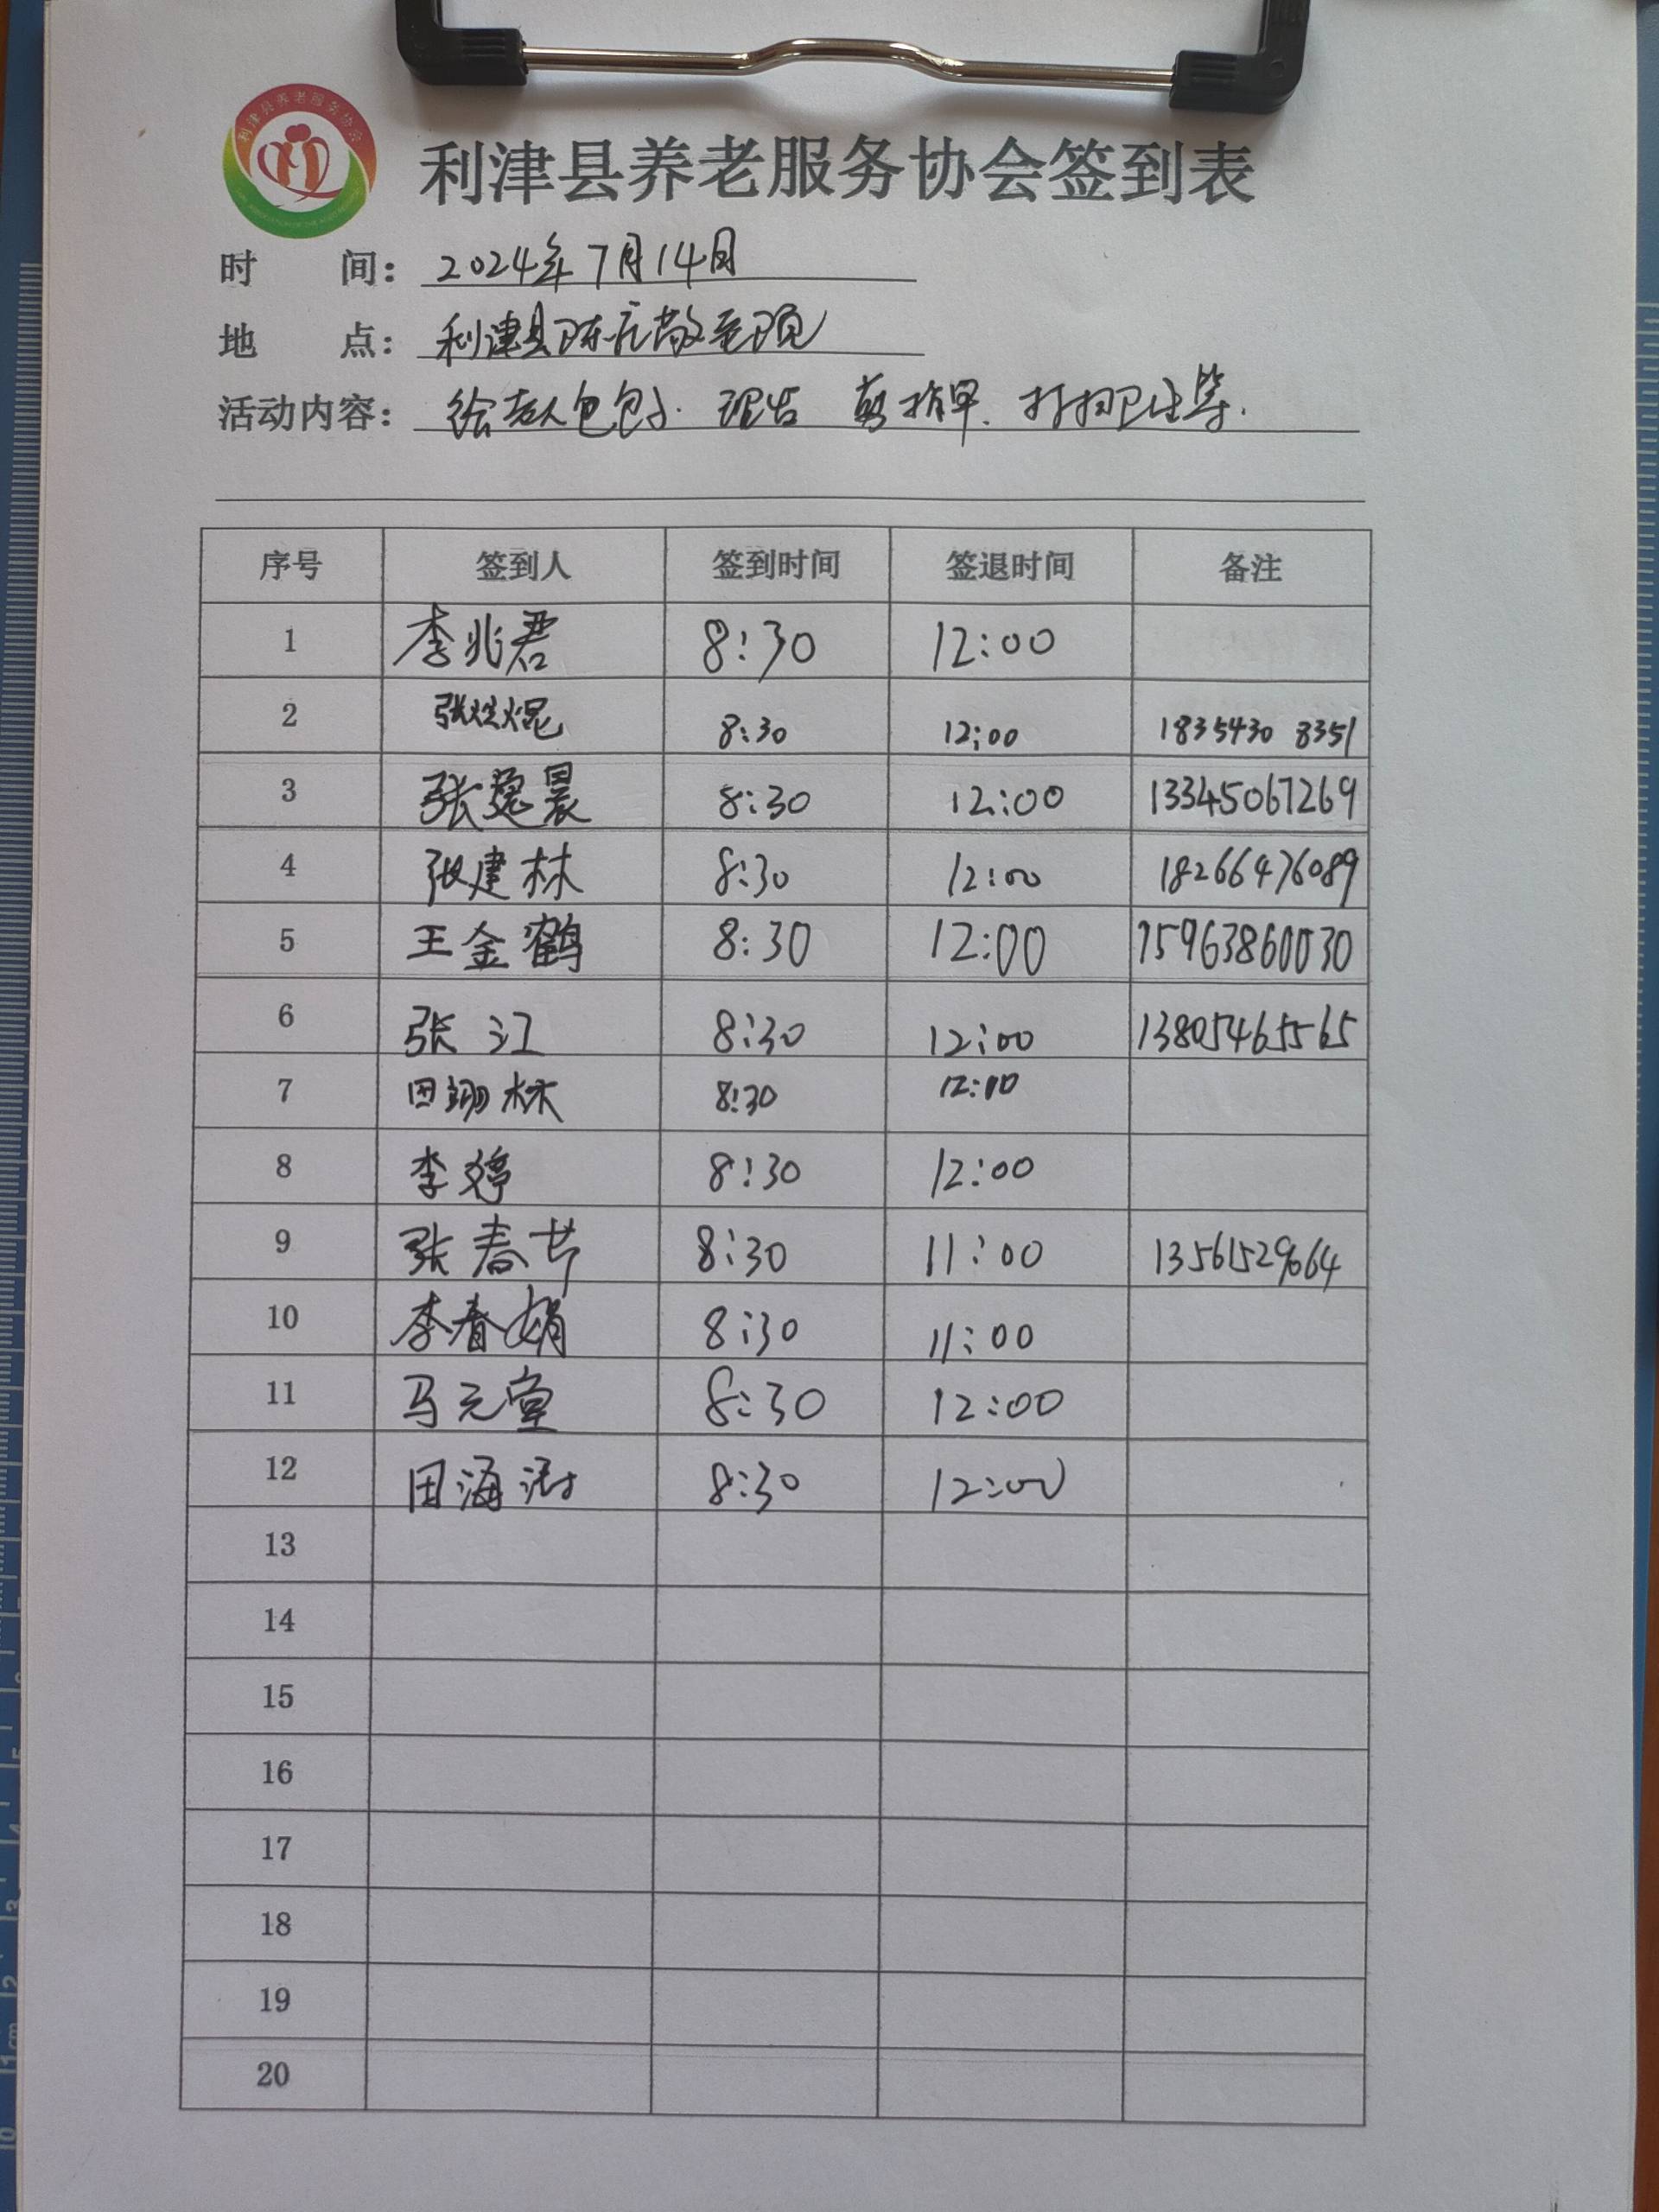 利津县养老服务协会
利津县养老服务协会签到表
时 间： 2024年7月14日
地 点： 利津县陈庄敬老院
活动内容： 给老人包包子. 理发 剪指甲. 打扫卫生等.
序号 签到人 签到时间 签退时间 备注
1 李兆君 8:30 12:00
2 张 8:30 12:00 1835430 8351
3 张 晨 8:30 12:00 13345067269
4 张建林 8:30 12:00 18266476089
5 王金鹤 8:30 12:00 15963860030
6 张江 8:30 12:00 13805465565
7 田翊林 8:30 12:00
8 李婷 8:30 12:00
9 张春节 8:30 11:00 13561529664
10 李春娟 8:30 11:00
11 马元堂 8:30 12:00
12 田海涛 8:30 12:00
13
14
15
16
17
18
19
20